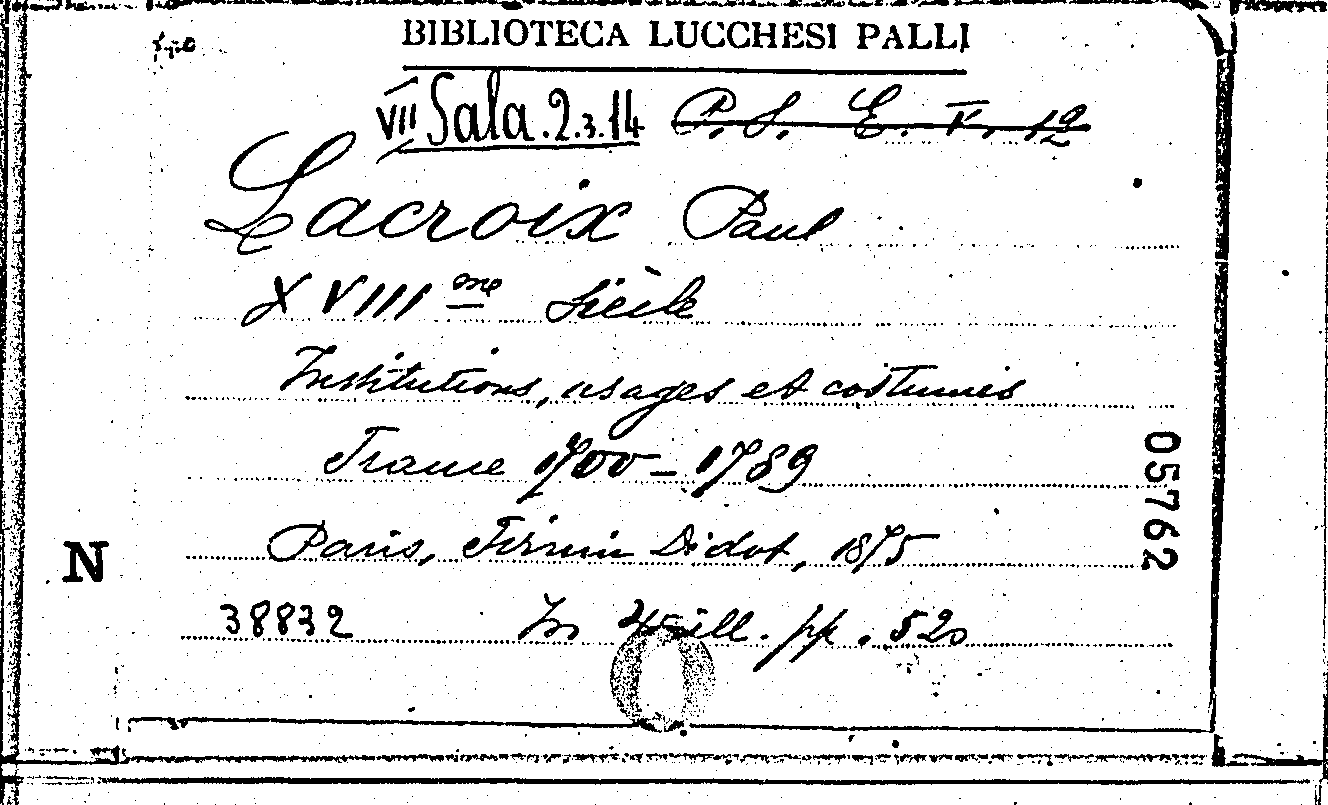 BIBLIOTECA LUCCHESI PALLI
VII Sala.2.3.14 P. S. E. V. 12
Lacroix Paul
XVIII ème Siècle
Institutions, usages et costumes
France 1700-1789
Paris, Firmin Didot, 1875
38832 In 4° ill. pp. 520
05762
N